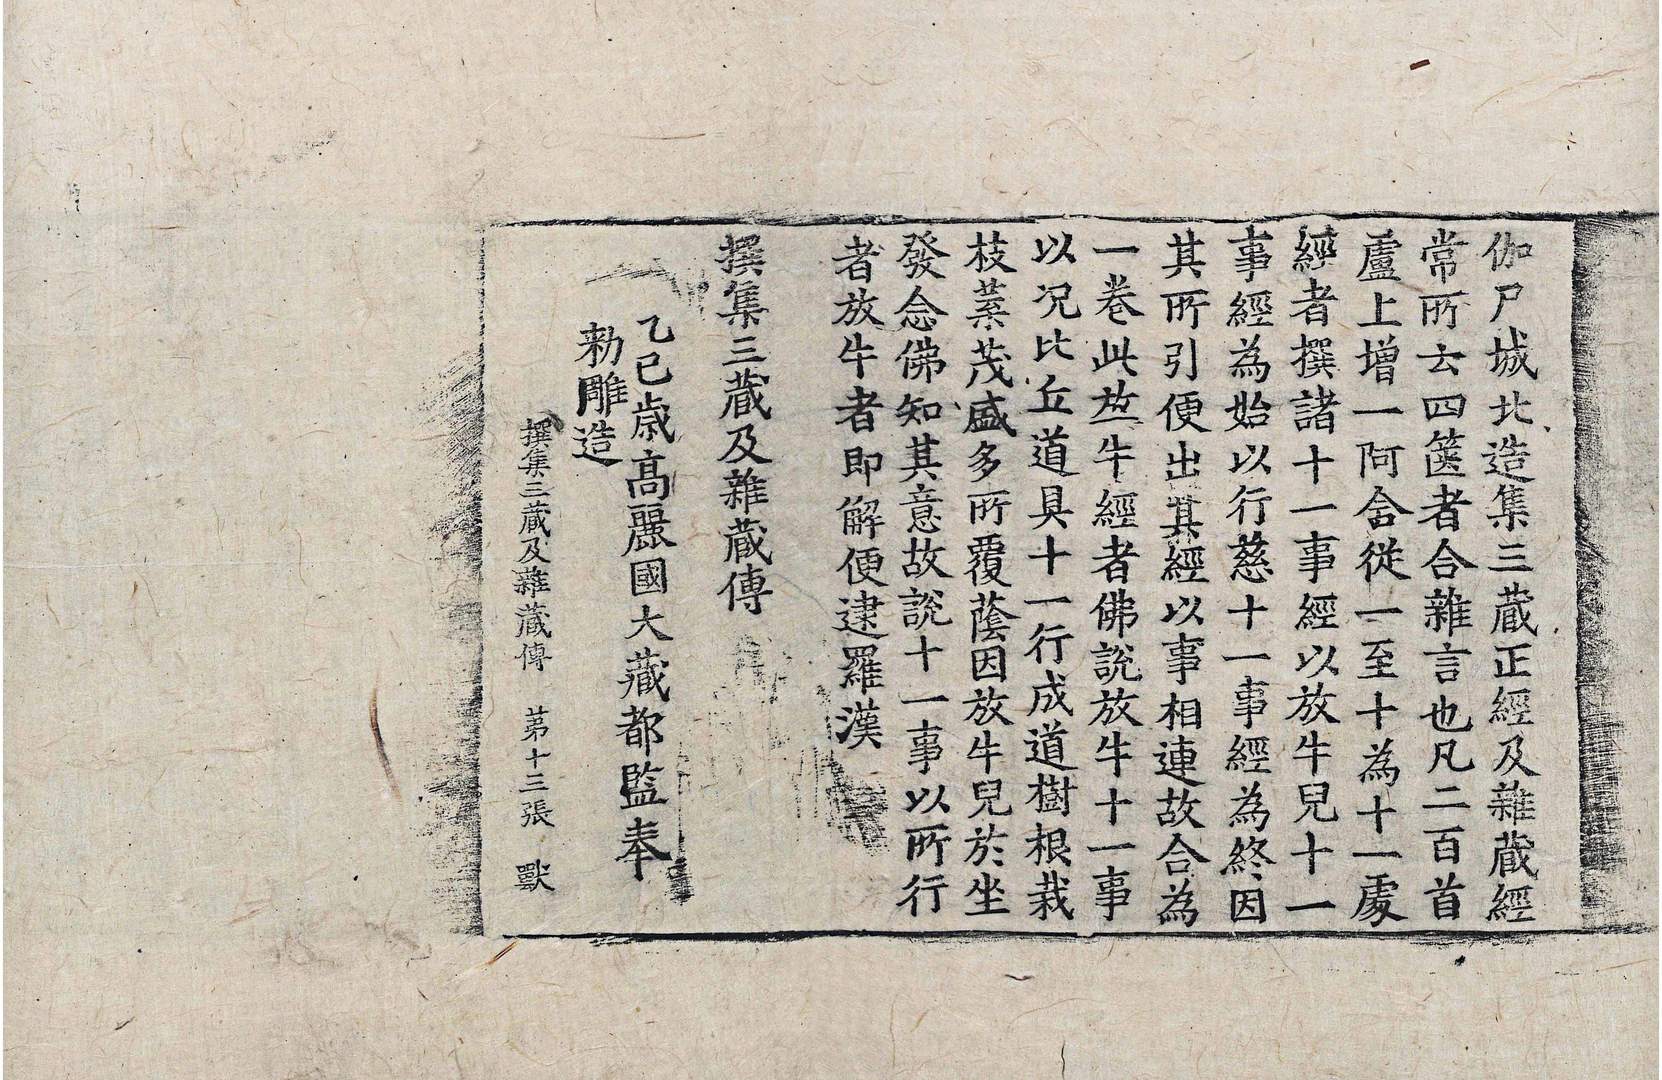 伽尸城北造集三蔵正經及雜蔵經
常所云四篋者合雜言也凡二百首
盧上增一阿含從一至十為十一處
經者撰諸十一事經以放牛兒十一
事經為始以行慈十一事經為終因
其所引便出其經以事相連故合為
一巻此放牛經者佛說放牛十一事
以況比丘道具十一行成道樹根栽
枝葉茂盛多所覆蔭因放牛兒於坐
發念佛知其意故說十一事以所行
者放牛者即解便逮羅漢
撰集三蔵及雜蔵傳
乙巳歳高麗國大蔵都監奉
勑雕造
撰集三蔵及雜蔵傳 苐十三張 獸